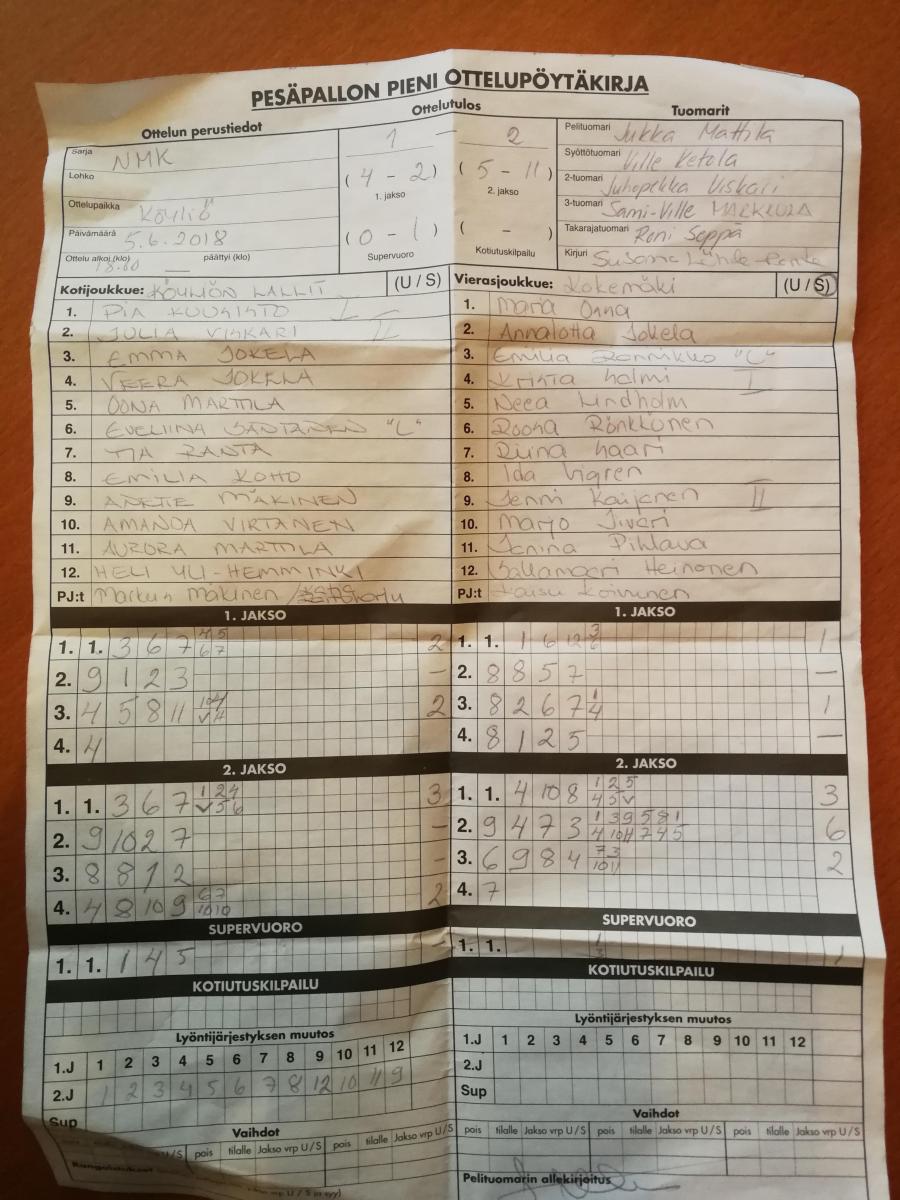 PESÄPALLON PIENI OTTELUPÖYTÄKIRJA
Ottelun perustiedot
Ottelutulos
Tuomarit
Sarja NMK
Lohko
Ottelupaikka Köyliö
Päivämäärä 5.6.2018
Ottelu alkoi (klo) 18.00 päättyi (klo)
1 – 2
(4 – 2) (5 – 11)
1. jakso 2. jakso
(0 – 1) ( – )
Supervuoro Kotiutuskilpailu
Pelituomari Jukka Mattila
Syöttötuomari Ville Ketola
2-tuomari Juhopekka Viskari
3-tuomari Sami-Ville MARKKULA
Takarajatuomari Roni Seppä
Kirjuri Susanna
Kotijoukkue: KÖYLIÖN LALLIT (U / S)
1. PIA KUUSISTO I
2. JULIA VISKARI II
3. EMMA JOKELA
4. VEERA JOKELA
5. OONA MARTTILA
6. EVELIINA SANTANEN "C"
7. TIA RANTA
8. EMILIA KOHO
9. ANETTE MÄKINEN
10. AMANDA VIRTANEN
11. AURORA MARTTILA
12. HELI YLI-HEMMINKI
PJ:t Markus Mäkinen /
Vierasjoukkue: Kokemäki (U / S)
1. Maria Onna
2. Annalotta Jokela
3. Emilia Rannikko "C"
4. Krista Halmi I
5. Neea Lindholm
6. Roosa Rönkkönen
7. Riina Haari
8. Ida Vigren
9. Jenni Kaijanen II
10. Marjo Jiveri
11. Janina Pihlava
12. Sallamaari Heinonen
PJ:t Kaisu Koivunen
1. JAKSO
1. 1. 3 6 7 4 5 2
6 7
2. 9 1 2 3 –
3. 4 5 8 11 2
4. 4
1. JAKSO
1. 1. 1 6 12 3 1
6
2. 8 8 5 7 –
3. 8 2 6 7 1 1
4
4. 8 1 2 5 –
2. JAKSO
1. 1. 3 6 7 1 2 4 3
V 5 6
2. 9 10 2 7 –
3. 8 8 1 2 –
4. 4 8 10 9 6 7 2
10 10
2. JAKSO
1. 1. 4 10 8 1 2 5 3
4 5 V
2. 9 4 7 3 1 3 9 5 8 1 6
4 10 11 7 4 5
3. 6 9 8 4 7 3 2
10 11
4. 7
SUPERVUORO
1. 1. 1 4 5 –
SUPERVUORO
1. 1. 1
KOTIUTUSKILPAILU
KOTIUTUSKILPAILU
Lyöntijärjestyksen muutos
1.J 1 2 3 4 5 6 7 8 9 10 11 12
2.J 1 2 3 4 5 6 7 8 12 10 11 9
Sup
Lyöntijärjestyksen muutos
1.J 1 2 3 4 5 6 7 8 9 10 11 12
2.J
Sup
Vaihdot
U/S pois tilalle Jakso vrp U/S pois tilalle Jakso vrp U/S
Vaihdot
pois tilalle Jakso vrp U/S pois tilalle Jakso vrp U/S pois tilalle Jakso vrp U/S
Pelituomarin allekirjoitus